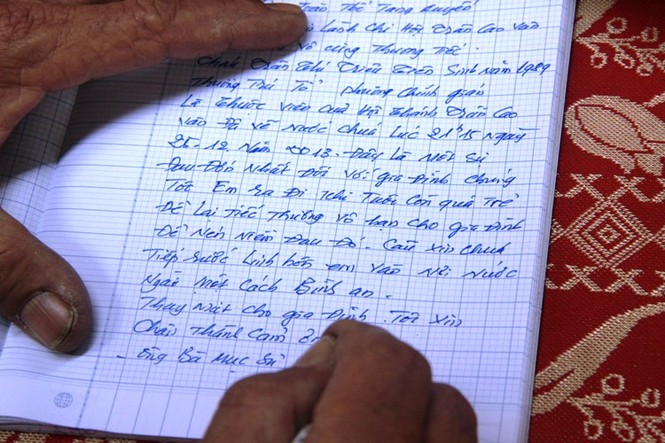 Toàn Thể Tang Quyến
Lãnh Chi Hội Trần Cao Vân
Vô cùng Thương Tiếc.
Trần Thị Sinh Năm 1989
Thường Trú Tổ phường Chính gián
Là Thuộc Viên của Hội Thánh Trần Cao
Vân Đã Về Nước chúa Lúc 21h15 Ngày
25-12 Năm 2013. Đây Là Một Sự
Đau Đớn Nhất Đối Với gia Đình chúng
Tôi Em Ra Đi Khi Tuổi Còn quá Trẻ
Để Lại Tiếc Thương Vô hạn cho gia Đình
Để Nén Niềm Đau Đó. Cầu Xin chúa
Tiếp Rước Linh hồn em Vào Nơi Nước
Ngài Một Cách Bình an.
Thay Mặt cho gia Đình Tôi Xin
Chân Thành Cảm
- Ông Bà Mục Sư